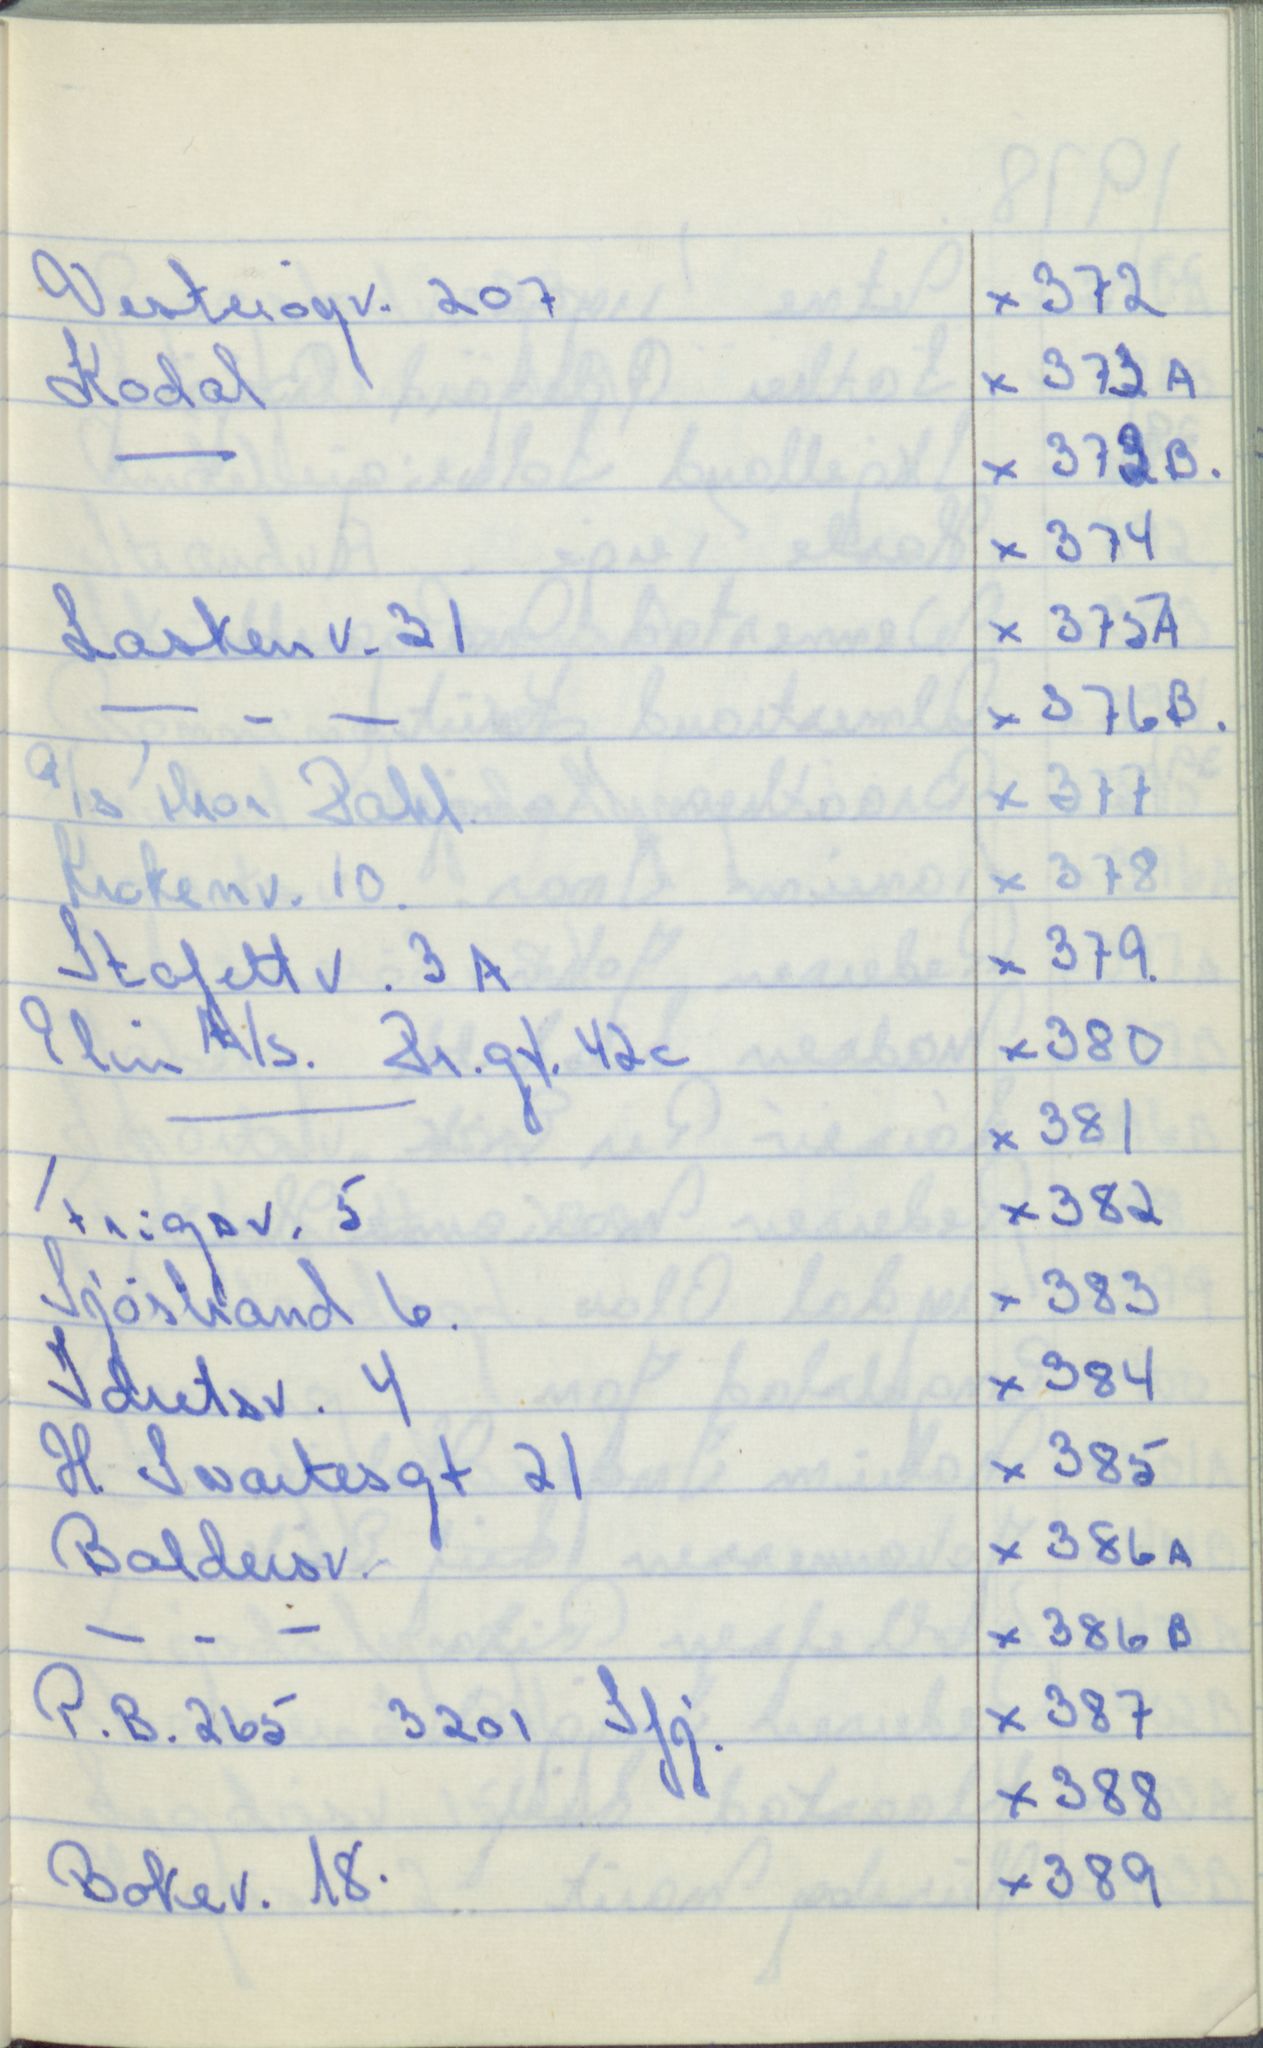 Vesterögv. 207 x 372
Kodal x 373 A
— x 373 B.
x 374
Lasken v. 31 x 375A
— - — x 376 B.
A/S Thor Dahl. x 377
Krokenv. 10. x 378
Stafettv. 3 A x 379.
Elin A/s. Dr.gt. 42c x 380
— x 381
v. 5 x 382
Sjöstrand 6. x 383
Idretsv. 4 x 384
H. Svartesgt 21 x 385
Baldersv. x 386 A
— - — x 386 B
P.B. 265 3201 Sfj. x 387
x 388
Bokev. 18. x 389